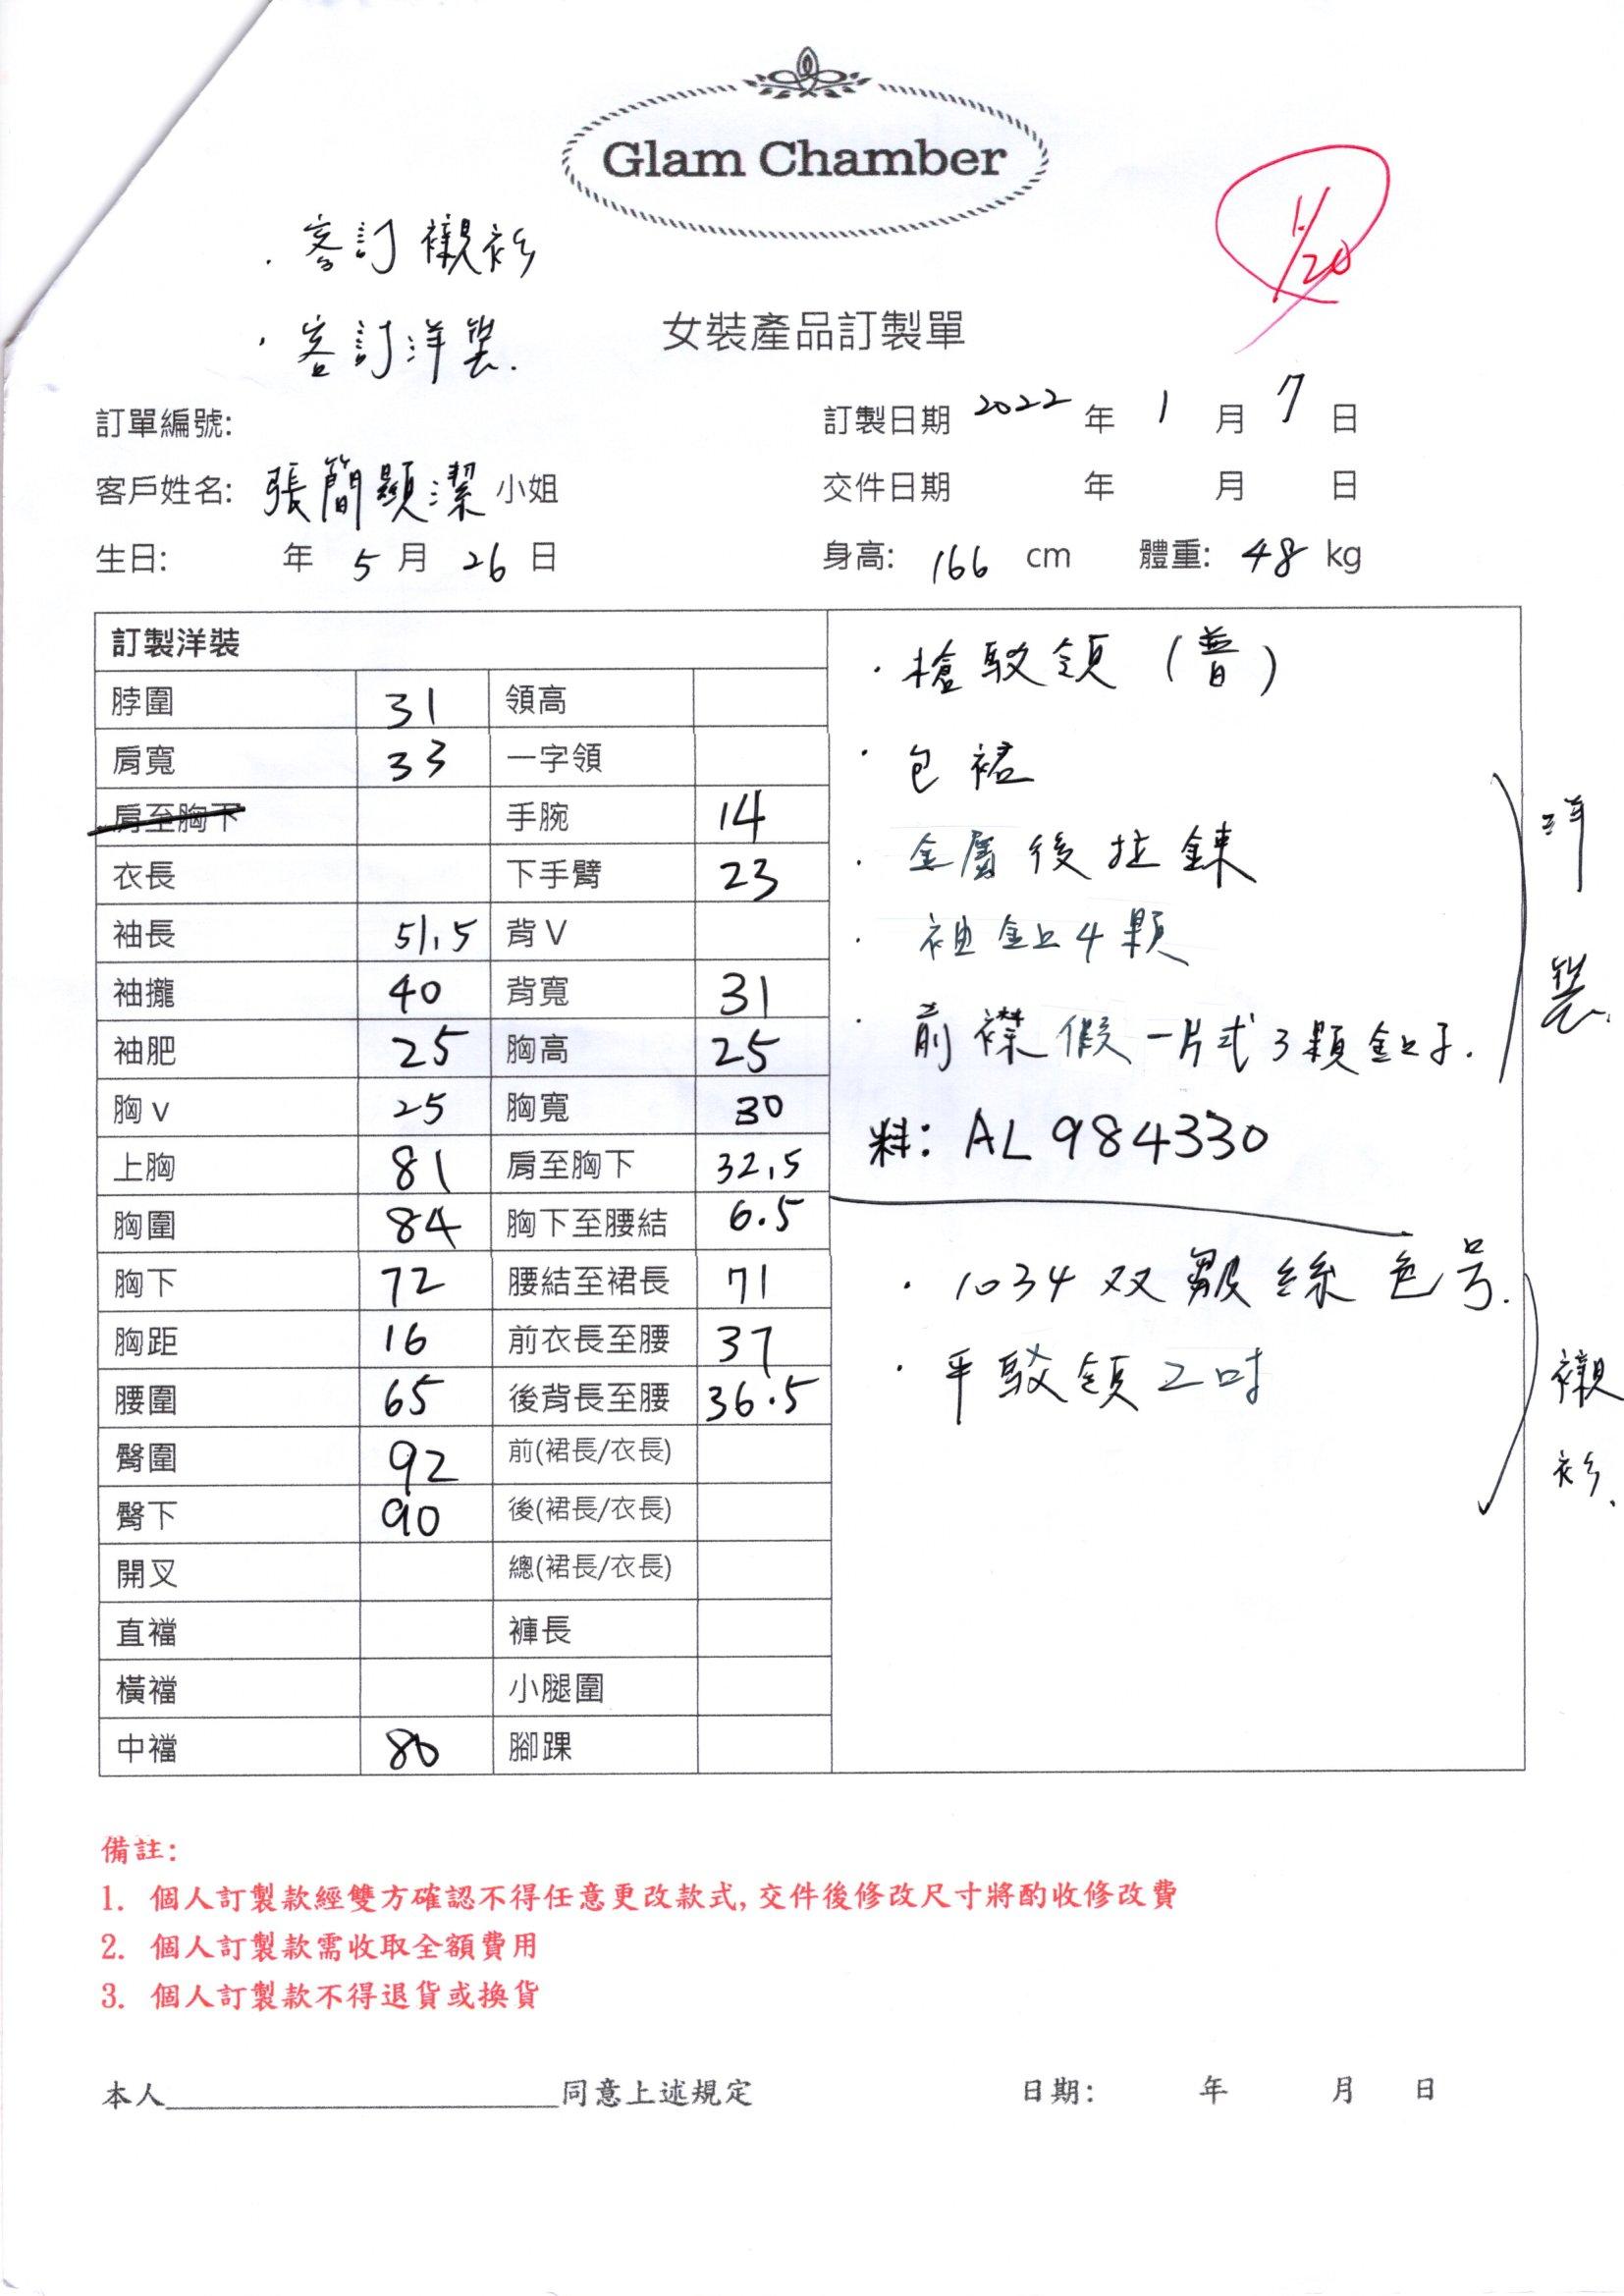 Glam Chamber
1/20
· 客訂襯衫
· 客訂洋裝.
女裝產品訂製單
訂單編號: 訂製日期 2022 年 1 月 7 日
客戶姓名: 張簡顯潔 小姐 交件日期 年 月 日
生日: 年 5 月 26 日 身高: 166 cm 體重: 48 kg
訂製洋裝
脖圍 31 領高
肩寬 33 一字領
肩至胸下 手腕 14
衣長 下手臂 23
袖長 51.5 背V
袖攏 40 背寬 31
袖肥 25 胸高 25
胸v 25 胸寬 30
上胸 81 肩至胸下 32.5
胸圍 84 胸下至腰結 6.5
胸下 72 腰結至裙長 71
胸距 16 前衣長至腰 37
腰圍 65 後背長至腰 36.5
臀圍 92 前(裙長/衣長)
臀下 90 後(裙長/衣長)
開叉 總(裙長/衣長)
直襠 褲長
橫襠 小腿圍
中襠 80 腳踝
· 槍駁領 (普)
· 包裙
· 金屬後拉鍊
· 袖釦4顆
· 前襟假一片式3顆釦子.
料: AL984330
洋裝.
· 1034 双皺絲 色号.
· 平駁領2吋
襯衫.
備註:
1. 個人訂製款經雙方確認不得任意更改款式, 交件後修改尺寸將酌收修改費
2. 個人訂製款需收取全額費用
3. 個人訂製款不得退貨或換貨
本人________________________同意上述規定 日期: 年 月 日